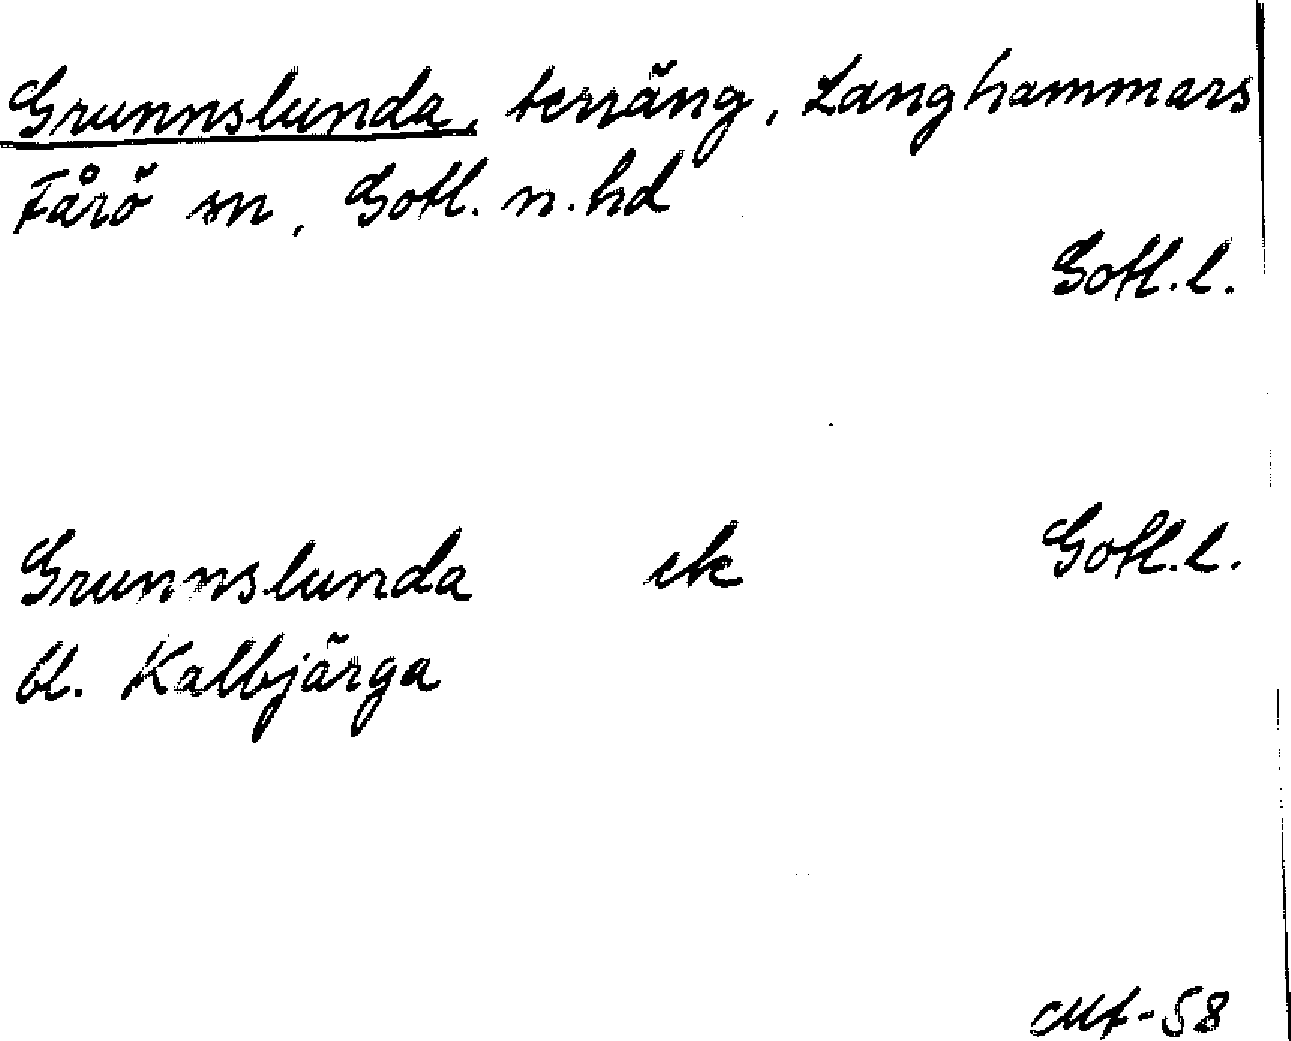 Grunnslunda, terräng, Langhammars
Fårö sn, Gotl. n. hd
Gotl. l.
Grunnslunda ek Gotl. l.
bl. Kalbjärga
Mf-58